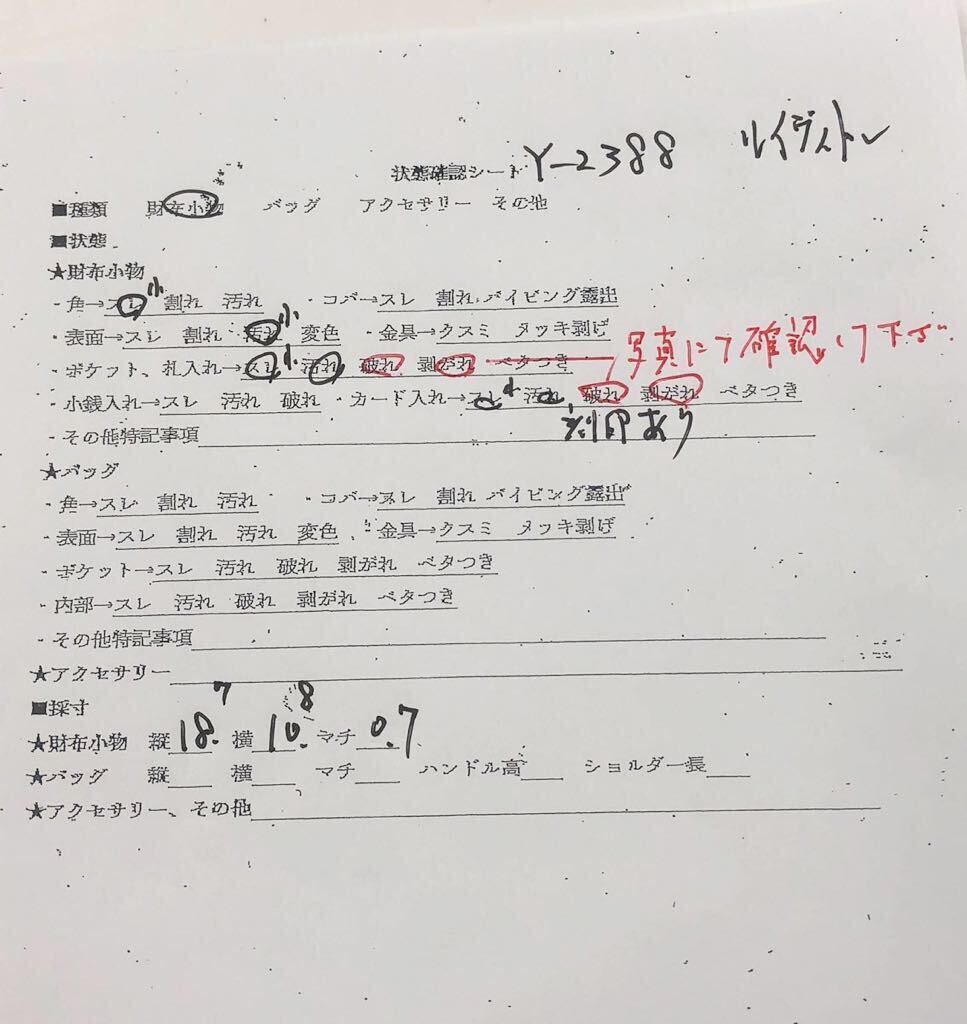 状態確認シート Y-2388 ルイヴィトン
■種類 財布小物 バッグ アクセサリー その他
■状態
★財布小物
・角→スレ小 割れ 汚れ ・コバ→スレ 割れ パイピング露出
・表面→スレ 割れ 汚れ小 変色 ・金具→クスミ メッキ剥げ
・ポケット、札入れ→スレ小 汚れ 破れ 剥がれ ベタつき 写真にて確認して下さい
・小銭入れ→スレ 汚れ 破れ ・カード入れ→スレ小 汚れ 破れ 剥がれ ベタつき
・その他特記事項 刻印あり
★バッグ
・角→スレ 割れ 汚れ ・コバ→スレ 割れ パイピング露出
・表面→スレ 割れ 汚れ 変色 ・金具→クスミ メッキ剥げ
・ポケット→スレ 汚れ 破れ 剥がれ ベタつき
・内部→スレ 汚れ 破れ 剥がれ ベタつき
・その他特記事項
★アクセサリー
■採寸
★財布小物 縦 18.7 横 10.8 マチ 0.7
★バッグ 縦 横 マチ ハンドル高 ショルダー長
★アクセサリー、その他